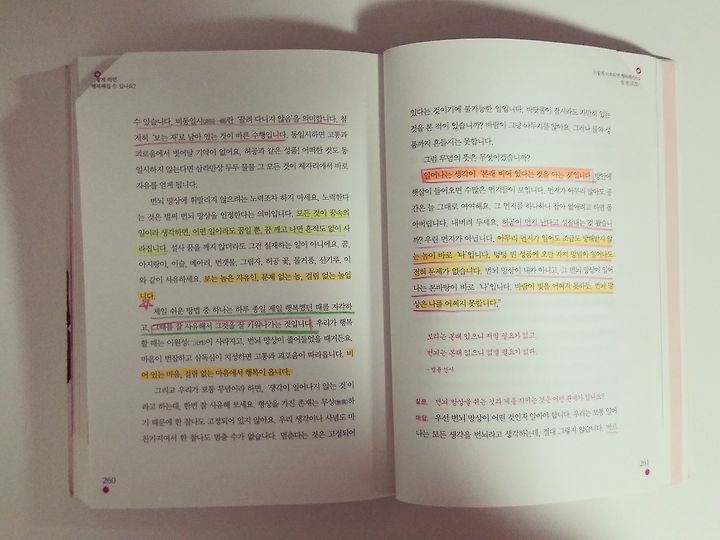 어떻게 하면
행복해질 수 있나요?
수 있습니다. 비동일시(非同一視)란 '끌려 다니지 않음'을 의미합니다. 철
저히 '보는 자'로 남아 있는 것이 바른 수행입니다. 동일시하면 고통과
괴로움에서 벗어날 기약이 없어요. 허공과 같은 성품! 어떠한 것도 동
일시하지 않는다면 삼라만상 두두 물물 그 모든 것이 제자리에서 바로
자유를 얻게 됩니다.
번뇌 망상에 휘말리지 않으려는 노력조차 하지 마세요. 노력한다
는 것은 벌써 번뇌 망상을 인정한다는 의미입니다. 모든 것이 꿈속의
일이라 생각하면, 어떤 일이라도 꿈일 뿐, 꿈 깨고 나면 흔적도 없이 사
라집니다. 설사 꿈을 깨지 않더라도 그건 실재하는 일이 아니에요. 꿈,
아지랑이, 이슬, 메아리, 번갯불, 그림자, 허공 꽃, 물거품, 신기루, 이
와 같이 사유하세요. 보는 놈은 자유인, 문제 없는 놈, 걸림 없는 놈입
니다.
제일 쉬운 방법 중 하나는 하루 종일 제일 행복했던 때를 자각하
고, 그때를 잘 사유해서 그것을 잘 키워나가는 것입니다. 우리가 행복
할 때는 이원성(二元性)이 사라지고, 번뇌 망상이 줄어들었을 때거든요.
마음이 번잡하고 삼독심이 치성하면 고통과 괴로움이 따라옵니다. 비
어 있는 마음, 걸림 없는 마음에서 행복이 옵니다.
그리고 우리가 보통 무념이라 하면, '생각이 일어나지 않는 것'이
라고 하는데, 한번 잘 사유해 보세요. 형상을 가진 존재는 무상(無常)하
기 때문에 한 찰나도 고정되어 있지 않아요. 우리 생각이나 사념도 마
찬가지여서 한 찰나도 멈출 수가 없습니다. 멈춘다는 것은 고정되어
260
있다는 것이기에 불가능한 일입니다. 바닷물이 잠시라도 가만히 있는
것을 본 적이 있습니까? 바람이 그냥 놔두지를 않아요. 그러나 물의 성
품까지 흔들지는 못합니다.
그럼 무념의 뜻은 무엇이겠습니까?
일어나는 생각이 '본래 비어 있다는 것을 아는 것'입니다. 방안에
햇살이 들어오면 수많은 먼지들이 보입니다. 먼지가 아무리 많아도 공
간은 늘 그대로 여여해요. 그 먼지를 하나하나 잡아 없애려고 하면 몸
아버립니다. 내버려 두세요. 허공이 먼지 난다고 성질내는 것 봤습니
까? 우린 먼지가 아닙니다. 아무리 먼지가 일어도 조금도 방해받지 않
는 놈이 바로 '나'입니다. 텅텅 빈 성품에 오만 가지 망념이 일어나도
전혀 문제가 없습니다. 번뇌 망상이 내가 아니고, 그 번뇌 망상이 일어
나는 본바탕이 바로 '나'입니다. 바람이 빛을 어쩌지 못하듯, 번뇌 망
상은 나를 어쩌지 못합니다."
보리는 본래 있으니 지킬 필요가 없고
번뇌는 본래 없으니 없앨 필요가 없다.
- 법융 선사
질문. 번뇌 망상을 쉬는 것과 계를 지키는 것은 어떤 관계가 있나요?
대답. 우선 번뇌 망상이 어떤 것인지 알아야 합니다. 우리는 보통 일어
나는 모든 생각을 번뇌라고 생각하는데, 절대 그렇지 않습니다. 바르
261